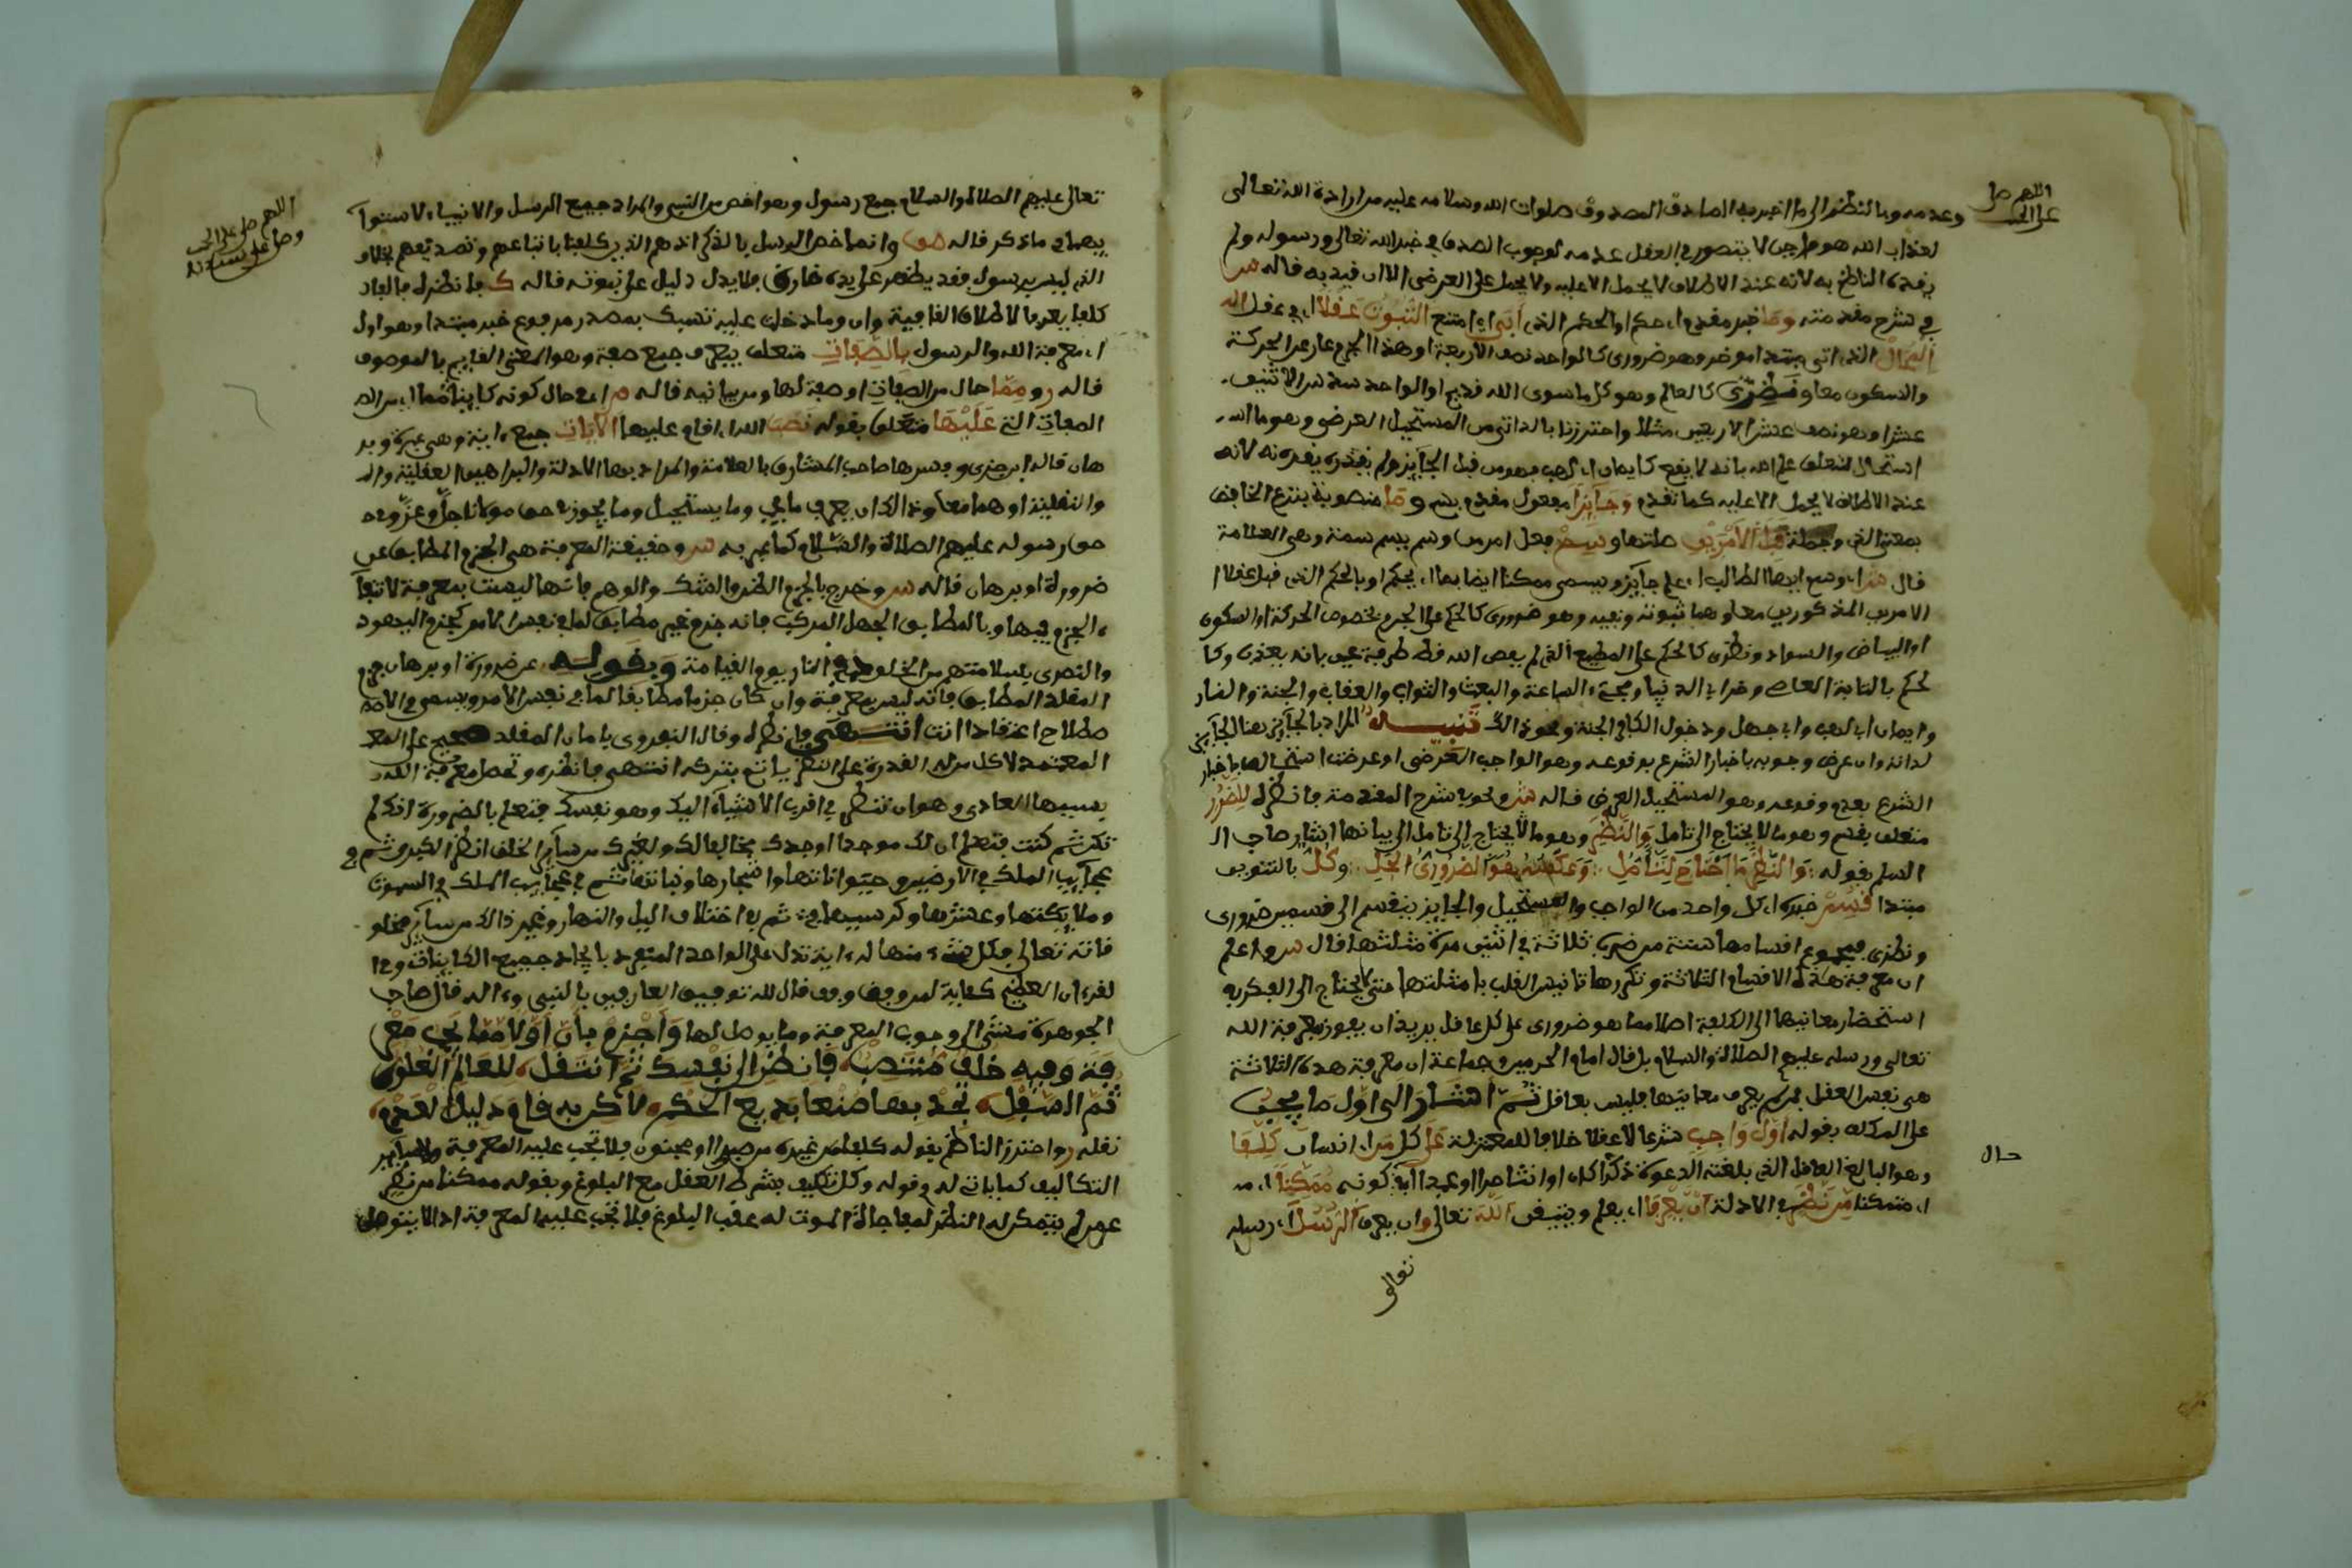 اللهم صل
على الحبيب
وعدمه وبالنظر الى ما اخبر به الصادق المصدوق صلوات الله وسلامه عليه من ارادة الله تعالى
لعذاب الله هو واجب لا يتصور في العقل عدمه لوجوب الصدق في خبر الله تعالى ورسوله ولم
يقيده الناظم به لانه عند الاطلاق لا يحمل الا عليه ولا يحمل على العرضي الا ان قيد به قاله
في شرح مقدمته وما خبر مقدم اي حكم او الحكم الذي أبى اي امتنع الثبوت عقلا اي في عقل
المحال الذي اتى مبتدا موخر وهو ضروري كالواحد نصف الاربعة او هذا الجرم عار عن الحركة
والسكون معا و نظري كالعالم وهو كل ما سوى الله قديم او الواحد سدس الاثنين
عشر او نصف عشر الاربعين مثلا واحترزنا بالذاتي من المستحيل العرضي وهو ما
استحال لتعلق علم الله بانه لا يقع كايمان ابي لهب فهو من قبل الجايز ولم يقيده
عند الاطلاق لا يحمل الا عليه كما تقدم وجايزا مفعول مقدم بسم و ما منصوبة بنزع الخافض
بمعنى الذي وجملة قبل الأمرين صلتها و سم فعل امر من وسم يسم سمة وهي العلامة
قال اي وسم ايها الطالب اي علم جايز ويسمى ممكنا ايضا بما اي بحكم او بالحكم الذي قبل عقلا
الامرين المذكورين معا وهما ثبوته ونفيه وهو ضروري كالحكم على الجرم بخصوص الحركة او السكون
او البياض والسواد ونظري كالحكم على المطيع الذي لم يعص الله قط طرفة عين بانه يعذب وكا
لحكم باثابة العاصي وخراب الدنيا ومجيء الساعة والبعث والثواب والعقاب والجنة والنار
وايمان ابي لهب وابي جهل ودخول الكافر الجنة ونحو ذالك تنبيه المراد بالجايز هنا الجايز
لذاته وان عرض وجوبه باخبار الشرع بوقوعه وهو الواجب العرضي او عرضت استحالته باخبار
الشرع بعدم وقوعه وهو المستحيل العرضي قاله ونحوه في شرح المقدمة فانظره للضرور
متعلق بقسم وهو ما لا يحتاج الى تامل والنظر وهو ما يحتاج الى تامل الى بيانها اشار صاحب ال
السلم بقوله والنظري ما احتاج للتأمل وعكسه هو الضروري الجلي وكل بالتنوين
مبتدا قسم خبره اي كل واحد من الواجب والمستحيل والجايز ينقسم الى قسمين ضروري
ونظري فمجموع اقسامها ستة من ضرب ثلاثة في اثنين قال واعلم
ان معرفة هذه الاقسام الثلاثة وتكررها تانيس القلب بامثلتها حتى لا يحتاج الى الفكر في
استحضار معانيها الى كلفة اصلا مما هو ضروري على كل عاقل يريد ان يفوز بمعرفة الله
تعالى ورسله عليهم الصلاة والسلام بل قال امام الحرمين وجماعة ان معرفة هذه الثلاثة
هي نفس العقل فمن لم يعرف معانيها فليس بعاقل ثم اشار الى اول ما يجب
على المكلف بقوله اول واجب شرعا لا عقلا خلافا للمعتزلة على كل من اي انسان كلفا
وهو البالغ العاقل الذي بلغته الدعوة ذكرا كان او انثى حرا او عبدا كونه ممكنا
اي متمكنا من نظر في الادلة أن يعرفا اي يعلم ويتيقن الله تعالى وان يعرف الرسل اي رسله
حال
تعالى
اللهم صل على الحبيب
وصل على سيدنا
تعالى عليهم الصلاة والسلام جمع رسول وهو اخص من النبي والمراد جميع الرسل والانبياء لاستوا
يهما في ما ذكر قاله وانما خص الرسل بالذكر لانهم الذين كلفنا باتباعهم وتصديقهم بخلاف
الذي ليس برسول فقد يظهر على يده خارق فلا يدل دليل على نبوته قاله فانظره
كلفا يعرفا لاطلاق القافية وان وما دخلت عليه تسبك بمصدر مرفوع خبر مبتدا وهو اول
اي معرفة الله والرسول بالصفات متعلق بيعرف جمع صفة وهو المعنى القايم بالموصوف
قاله و مما حال من الصفات او صفة لها ومن بيانية قاله اي حال كونه كاينا مما اي من
الصفات التي عليها متعلق بقوله نصب الله اي اقام عليها الآيات جمع اية وهي عبرة وبر
هان قاله ابن جزي وفسرها صاحب المشارق بالعلامة والمراد بها الادلة والبراهين العقلية
والنقلية او هما معا وذالك ان يعرف ما يجب وما يستحيل وما يجوز في حق مولانا جل وعز وفي
حق رسوله عليهم الصلاة والسلام كما عبر به وحقيقة المعرفة هي الجزم المطابق عن
ضرورة او برهان قاله وخرج بالجزم الظن والشك والوهم فانها ليست بمعرفة لانتفا
الجزم فيها وبالمطابق الجهل المركب فانه جزم غير مطابق لما في نفس الامر كجزم اليهود
والنصرى بسلامتهم من الخلود في النار يوم القيامة وبقوله عن ضرورة او برهان جزم
المقلد المطابق فانه ليس بمعرفة وان كان جزما مطابقا لما في نفس الامر ويسمى في الاص
طلاح اعتقادا انتهى فانظره وقال النووي بايمان المقلد صحيح على
المعتمد لاكن من له القدرة على النظر ياثم بتركه انتهى فانظره وتحصل معرفة الله
بسببها العادي وهو ان تنظر في اقرب الاشياء اليك وهو نفسك فتعلم بالضرورة انك لم
تكن ثم كنت فتعلم ان لك موجدا اوجدك مخالفا لك ولغيرك من ساير الخلق ثم في
عجايب الملك في الارضين وحيواناتها واشجارها ونباتها ثم في عجايب الملك في السموات
وملايكتها وعرشها وكرسيها ثم في اختلاف اليل والنهار وغير ذالك من ساير مخلو
قاته تعالى فكل شيء منها له اية تدل على الواحد المتفرد بايجاد جميع الكاينات وفي ا
لقرءان العظيم كفاية لمن وفق قال صاحب
الجوهرة مشيرا لوجوب المعرفة وما يوصل لها واجزم بأن أولا مما يجب معر
فة وفيه خلف منتصب فانظر إلى نفسك ثم انتقل للعالم العلوي
ثم السفلي تجد بها صنعا بديع الحكم لاكن به قام دليل العدم
نقله واحترز الناظم بقوله كلفا من غيره من صبي او مجنون فلا تجب عليه المعرفة ولا ساير
التكاليف كما ياتي له في قوله وكل تكليف بشرط العقل مع البلوغ وبقوله ممكنا من نظر
عمن لم يتمكن له النظر لمفاجاة الموت له عقب البلوغ فلا تجب عليه المعرفة اذ لا يتوصل